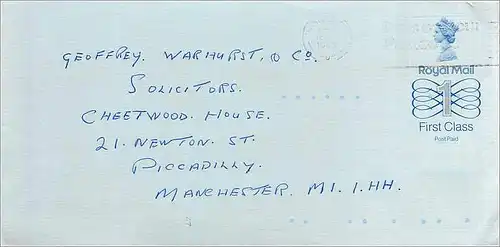 GEOFFREY. WARHURST. & Co.
SOLICITORS.
CHEETWOOD. HOUSE.
21. NEWTON. ST.
PICCADILLY.
MANCHESTER. M1. 1.HH.
Royal Mail
1
First Class
Post Paid